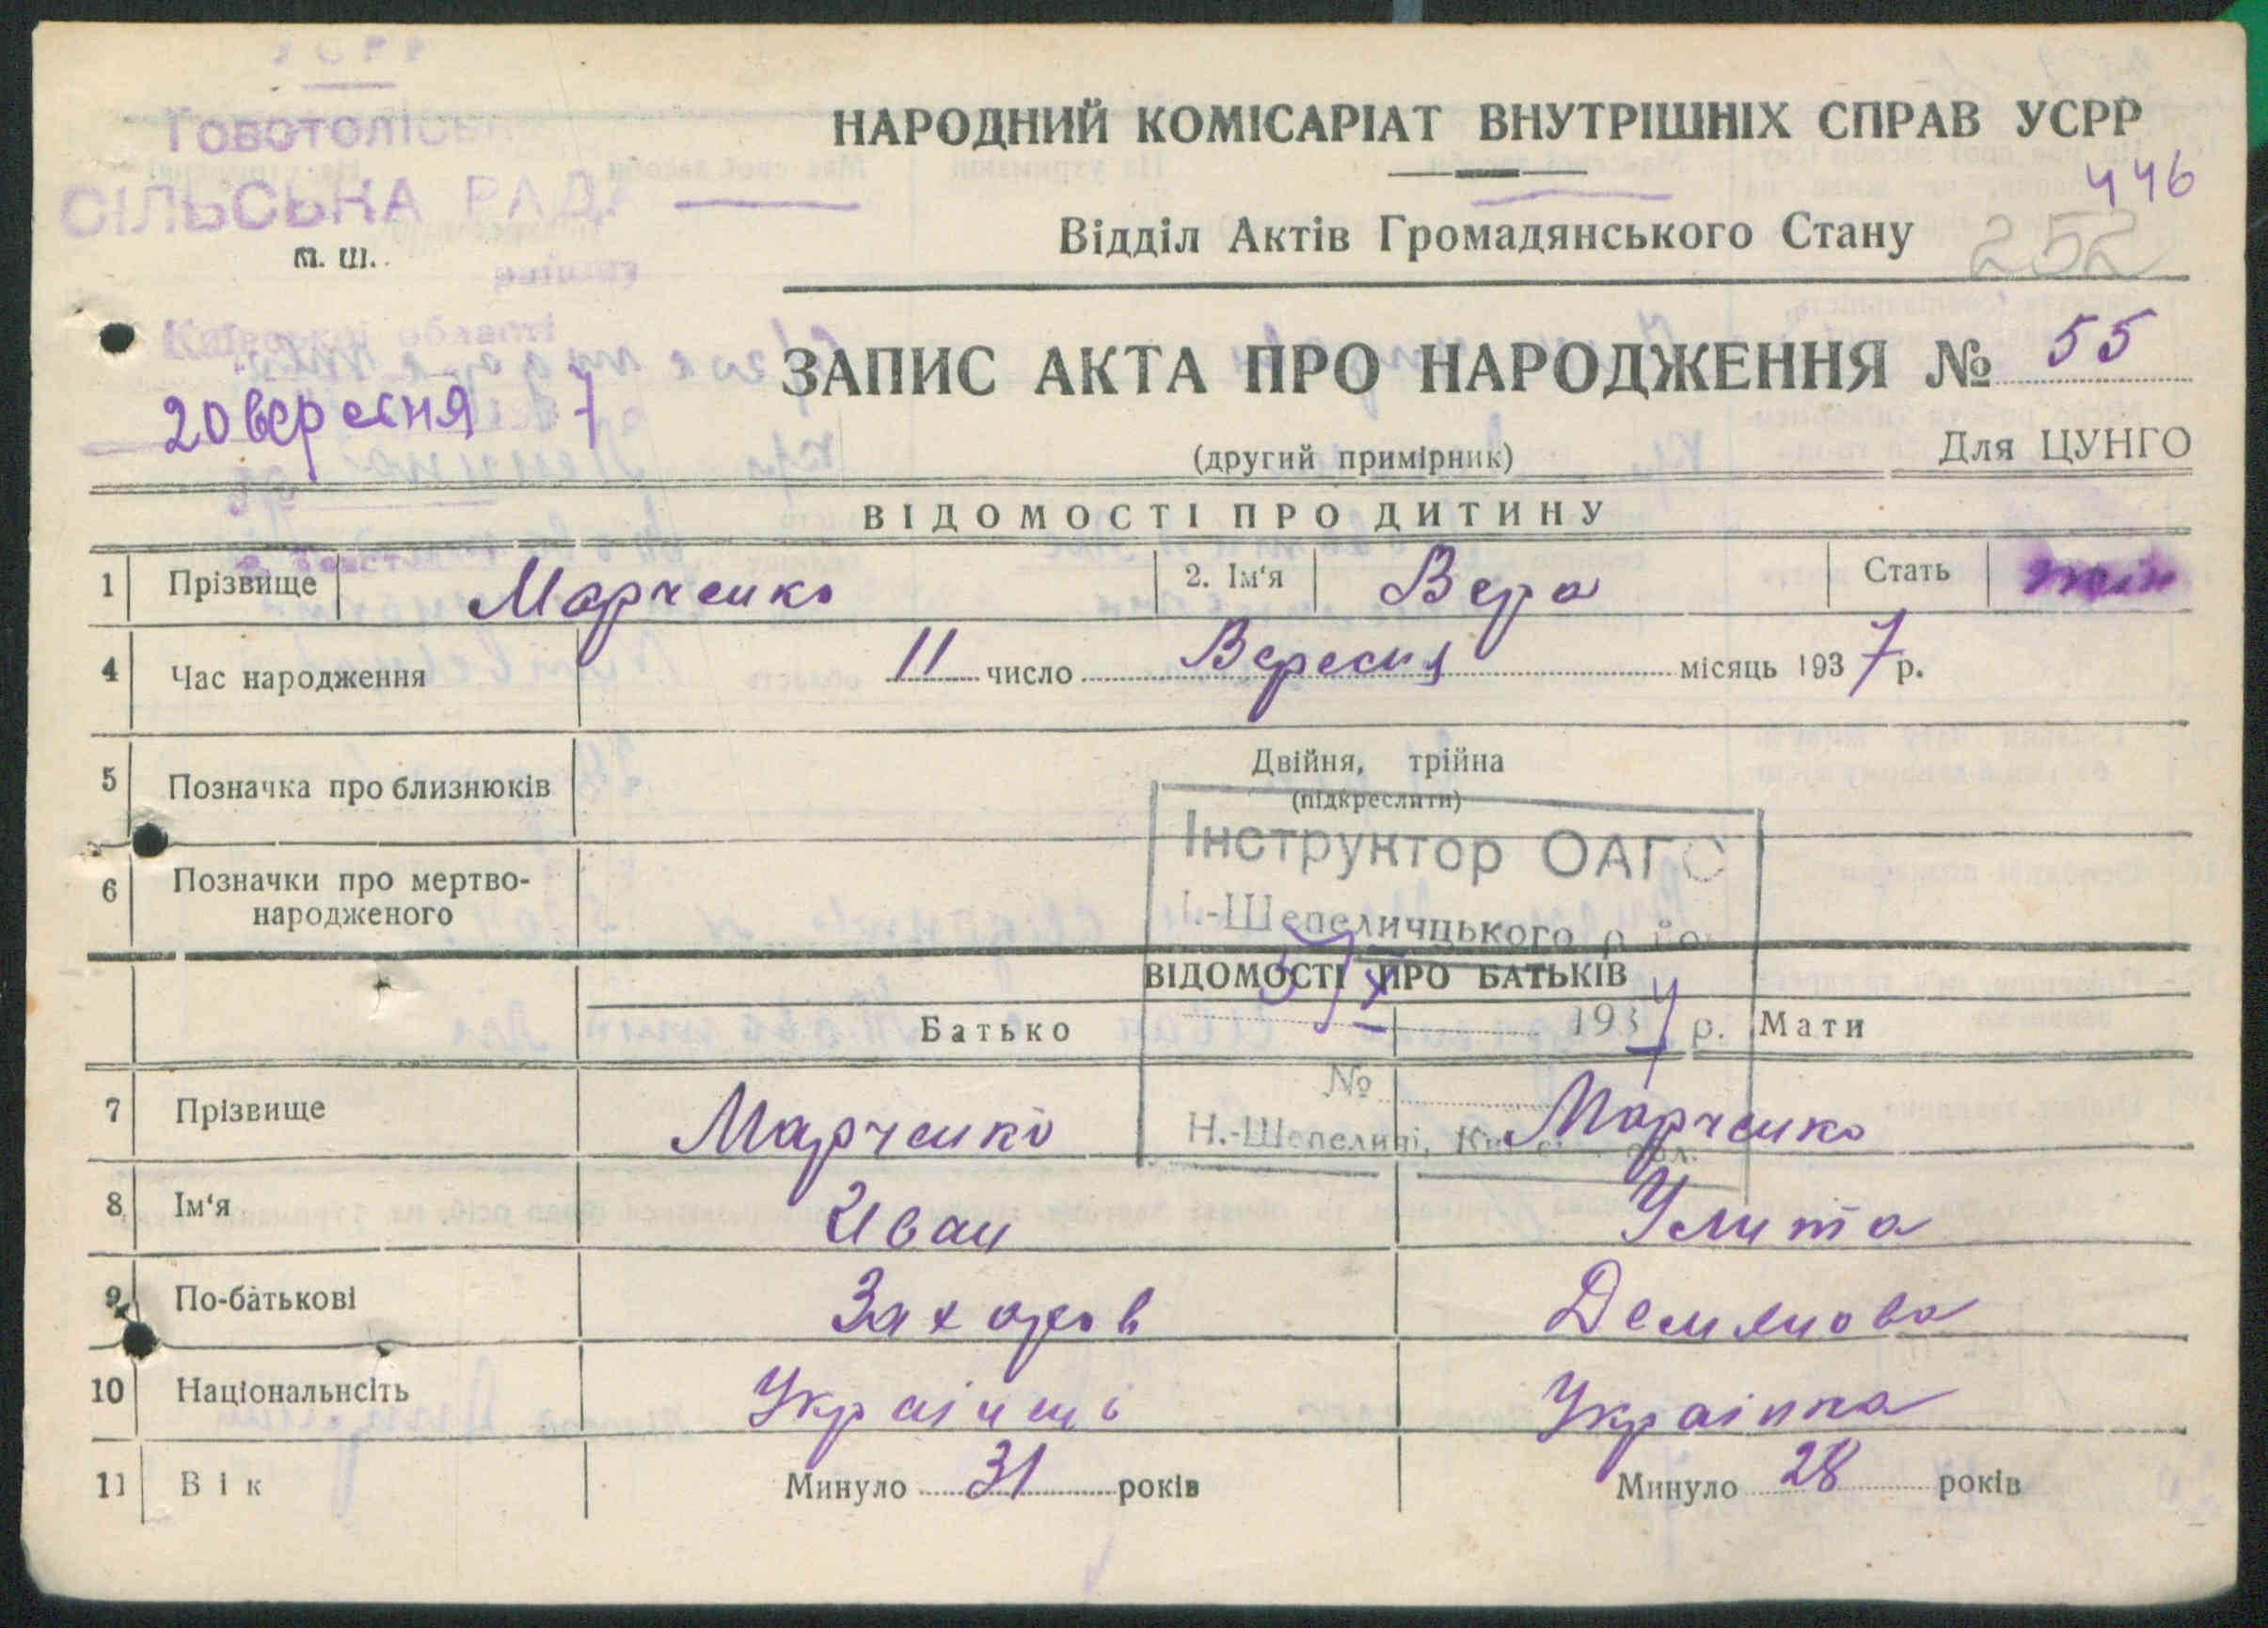 УСРР
НАРОДНИЙ КОМІСАРІАТ ВНУТРІШНІХ СПРАВ УСРР
СІЛЬСЬКА РАДА
446
п. ш.
Відділ Актів Громадянського Стану
252
Київської області
ЗАПИС АКТА ПРО НАРОДЖЕННЯ № 55
20 вересня 7
(другий примірник)
Для ЦУНГО
ВІДОМОСТІ ПРО ДИТИНУ
1 Прізвище Марченко 2. Ім'я Вера Стать жін
4 Час народження 11 число Вересня місяць 1937 р.
5 Позначка про близнюків Двійня, трійна
(підкреслити)
Інструктор ОАГС
6 Позначки про мертво-
народженого
Н.-Шепеличцького району
ВІДОМОСТІ ПРО БАТЬКІВ
Батько Мати
5/X 1937 р.
№
7 Прізвище Марченко Марченко
Н.-Шепеличі, Київськ. обл.
8 Ім'я Иван Улита
9 По-батькові Захаров Демянова
10 Національнсіть Українец Українка
11 Вік Минуло 31 років Минуло 28 років